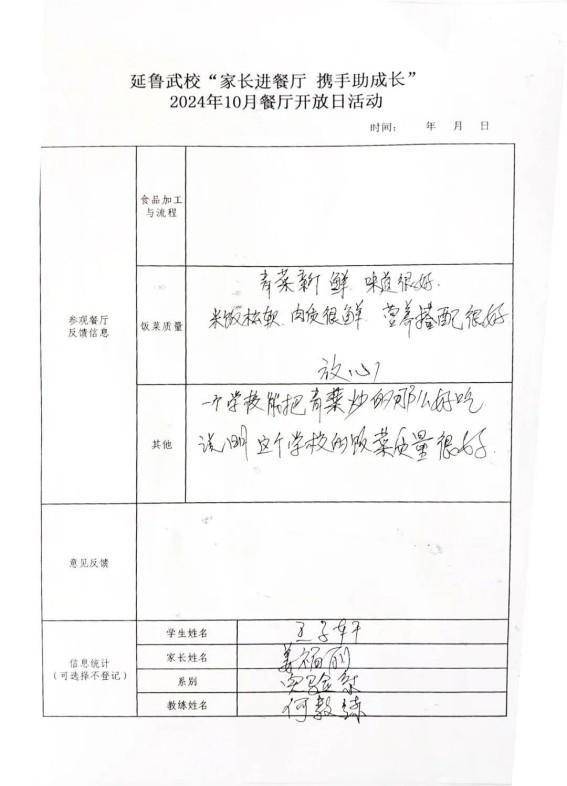 延鲁武校“家长进餐厅 携手助成长”
2024年10月餐厅开放日活动
时间： 年 月 日
参观餐厅
反馈信息
食品加工
与流程
饭菜质量
青菜新鲜 味道很好.
米饭松软 肉质很鲜 营养搭配很好
放心
其他
一个学校能把青菜炒的那么好吃
说明这个学校的饭菜质量很好.
意见反馈
信息统计
（可选择不登记）
学生姓名
王子轩
家长姓名
姜福丽
系别
实验系
教练姓名
何教练